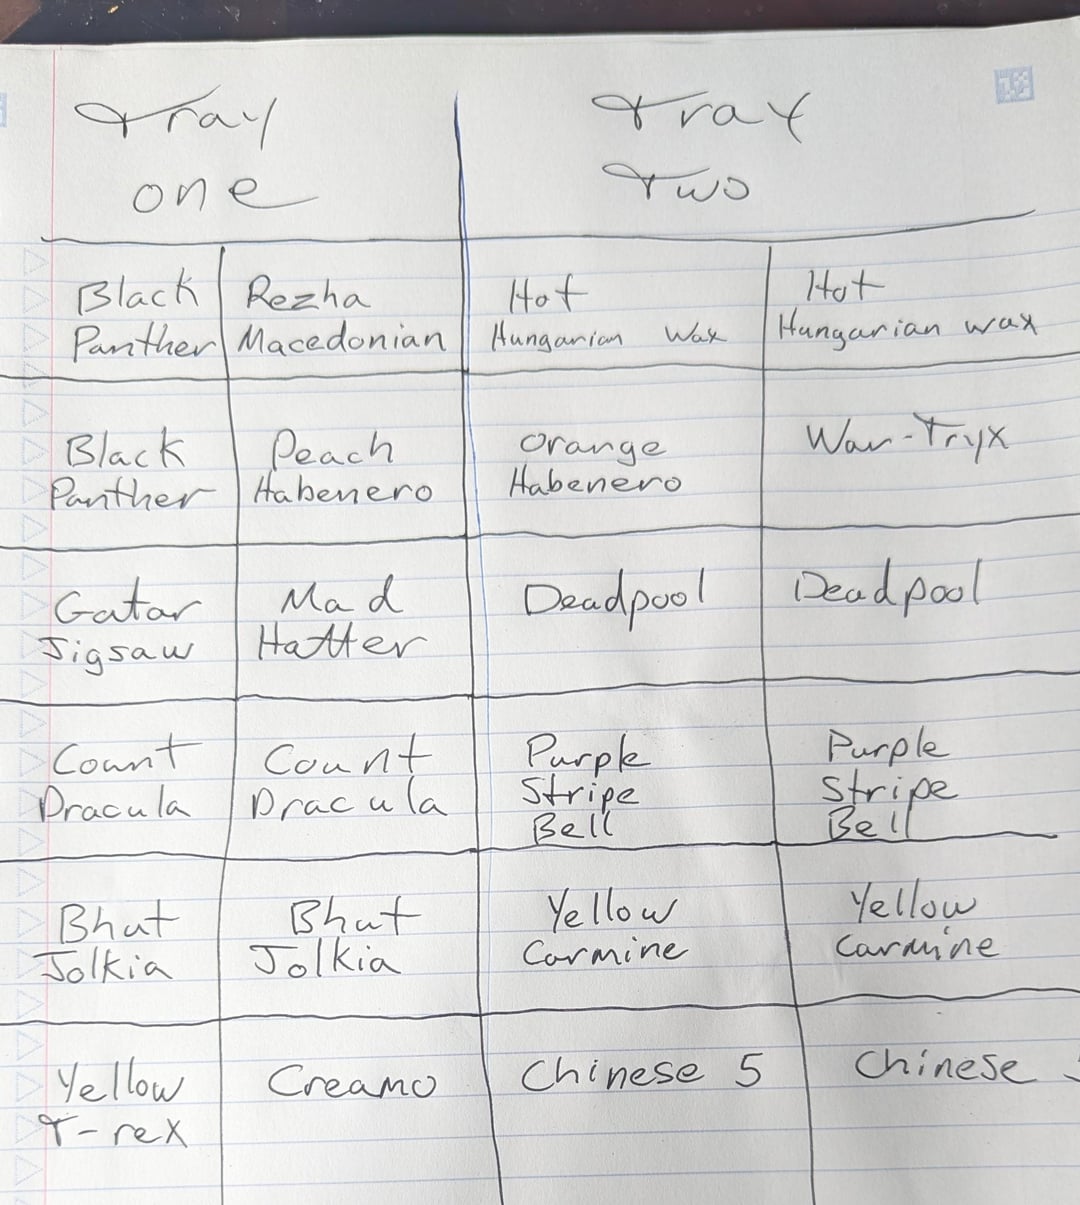 Tray
one
Tray
Two
Black
Panther
Rezha
Macedonian
Hot
Hungarian Wax
Hot
Hungarian wax
Black
Panther
Peach
Habenero
Orange
Habenero
War-Tryx
Gatar
Jigsaw
Mad
Hatter
Deadpool
Deadpool
Count
Dracula
Count
Dracula
Purple
Stripe
Bell
Purple
Stripe
Bell
Bhut
Jolkia
Bhut
Jolkia
Yellow
Carmine
Yellow
Carmine
Yellow
T-rex
Creamo
Chinese 5
Chinese